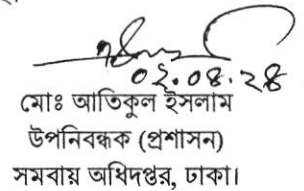 ০২.০৪.২৪
মোঃ আতিকুল ইসলাম
উপনিবন্ধক (প্রশাসন)
সমবায় অধিদপ্তর, ঢাকা।